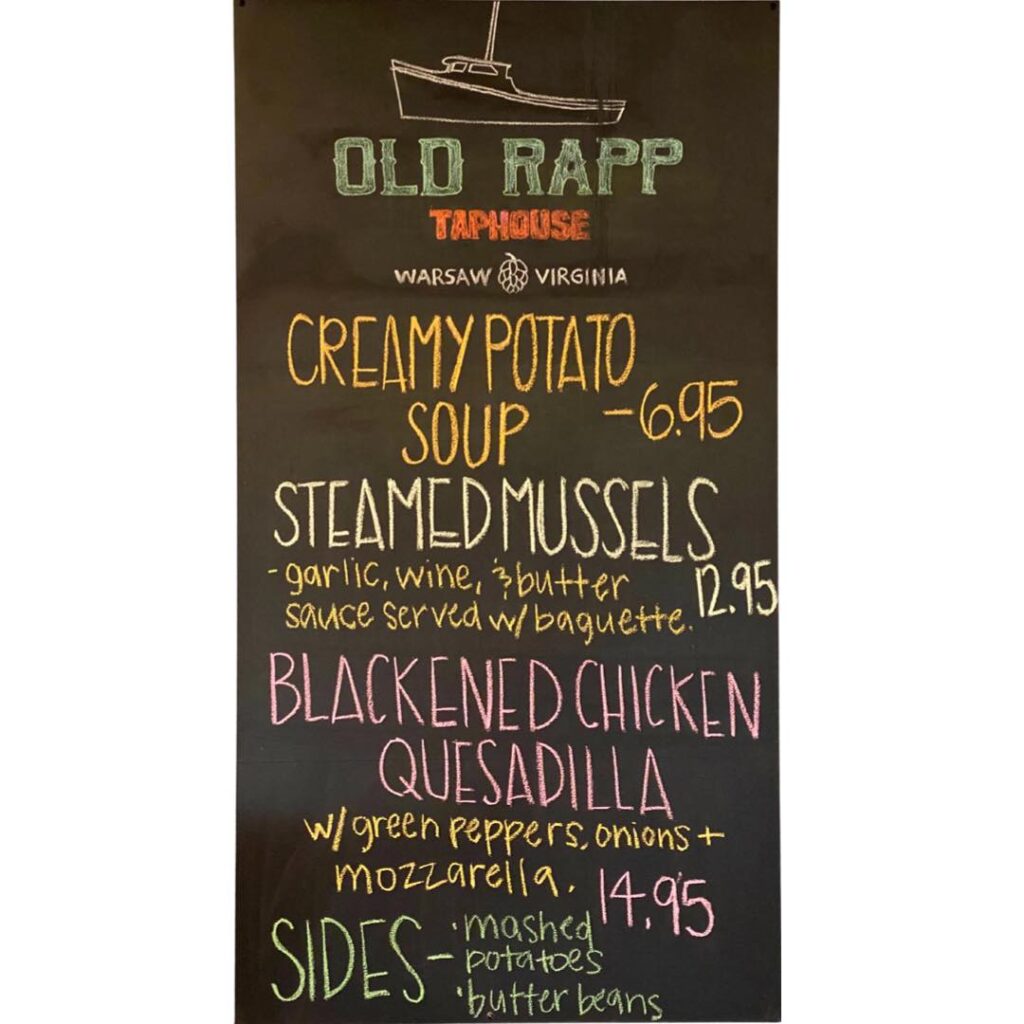 OLD RAPP
TAPHOUSE
WARSAW VIRGINIA
CREAMY POTATO
SOUP -6.95
STEAMED MUSSELS
- garlic, wine, & butter
sauce served w/ baguette. 12.95
BLACKENED CHICKEN
QUESADILLA
w/ green peppers, onions +
mozzarella. 14.95
SIDES - · mashed
potatoes
· butter beans